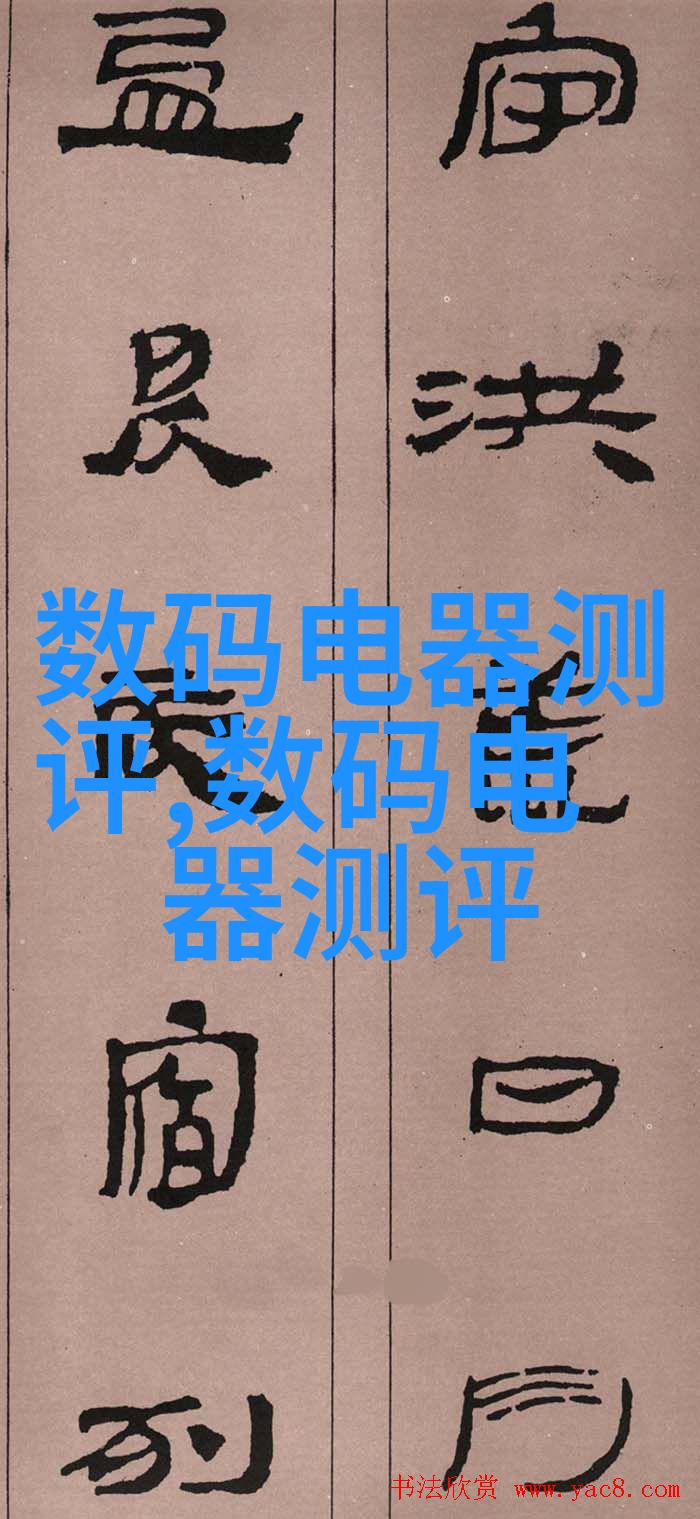 宇洪荒日月
盈昃辰宿列
数码电器测
评,数码电
器测评
书法欣赏 www.yac8.com